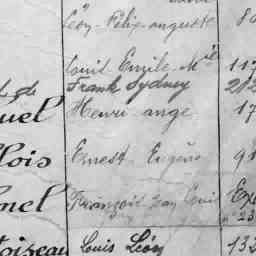 Léon Félix auguste 8
Louis Emile Mcel 117
Frank Sydney 282
uel Henri ange 17
llois Ernest Eugène 91
nel François Jean Louis Ex
n° 23
oiseau Louis Léon 132